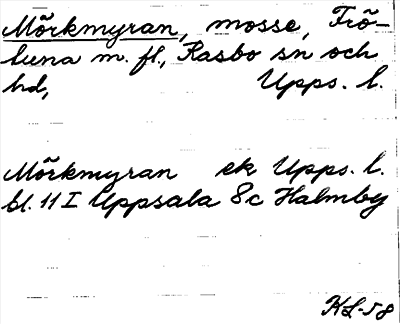 Mörkmyran, mosse, Frö-
tuna m. fl., Rasbo sn och
hd, Upps. l.
Mörkmyran ek Upps. l.
bl. 11 I Uppsala 8c Halmby
KL-58